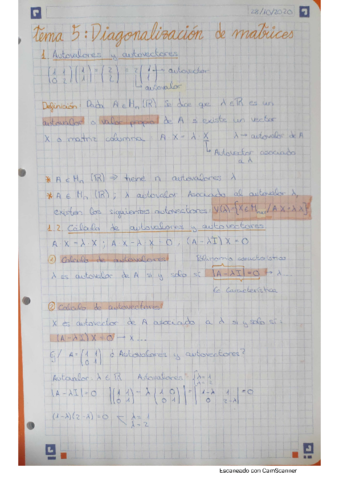 28/10/2020
Tema 5: Diagonalización de matrices
1. Autovalores y autovectores
autovector
autovalor
Definición: Dada A ∈ Mn (ℝ). Se dice que λ ∈ ℝ es un
autovalor o valor propio de A si existe un vector
X o matriz columna A X = λ X λ → autovalor de A
Autovector asociado
a λ
* A ∈ Mn (ℝ) → tiene n autovalores λ
* A ∈ Mn (ℝ); λ autovalor. Asociado al autovalor λ
existen los siguientes autovectores V(λ) = {X ∈ M / AX = λX}
1.2 Cálculo de autovalores y autovectores
A X = λ X ; A X - λ X = 0 ; (A - λI) X = 0
① Cálculo de autovalores
Polinomio característico
λ es autovalor de A si y solo si |A - λI| = 0 → λ
Ec. Característica
② Cálculo de autovectores
X es autovector de A asociado a λ si y solo si:
(A - λI) X = 0 → X
¿Autovalores y autovectores?
|A - λI| = 0
(1-λ)(2-λ) = 0 λ = 1
λ = 2
Escaneado con CamScanner